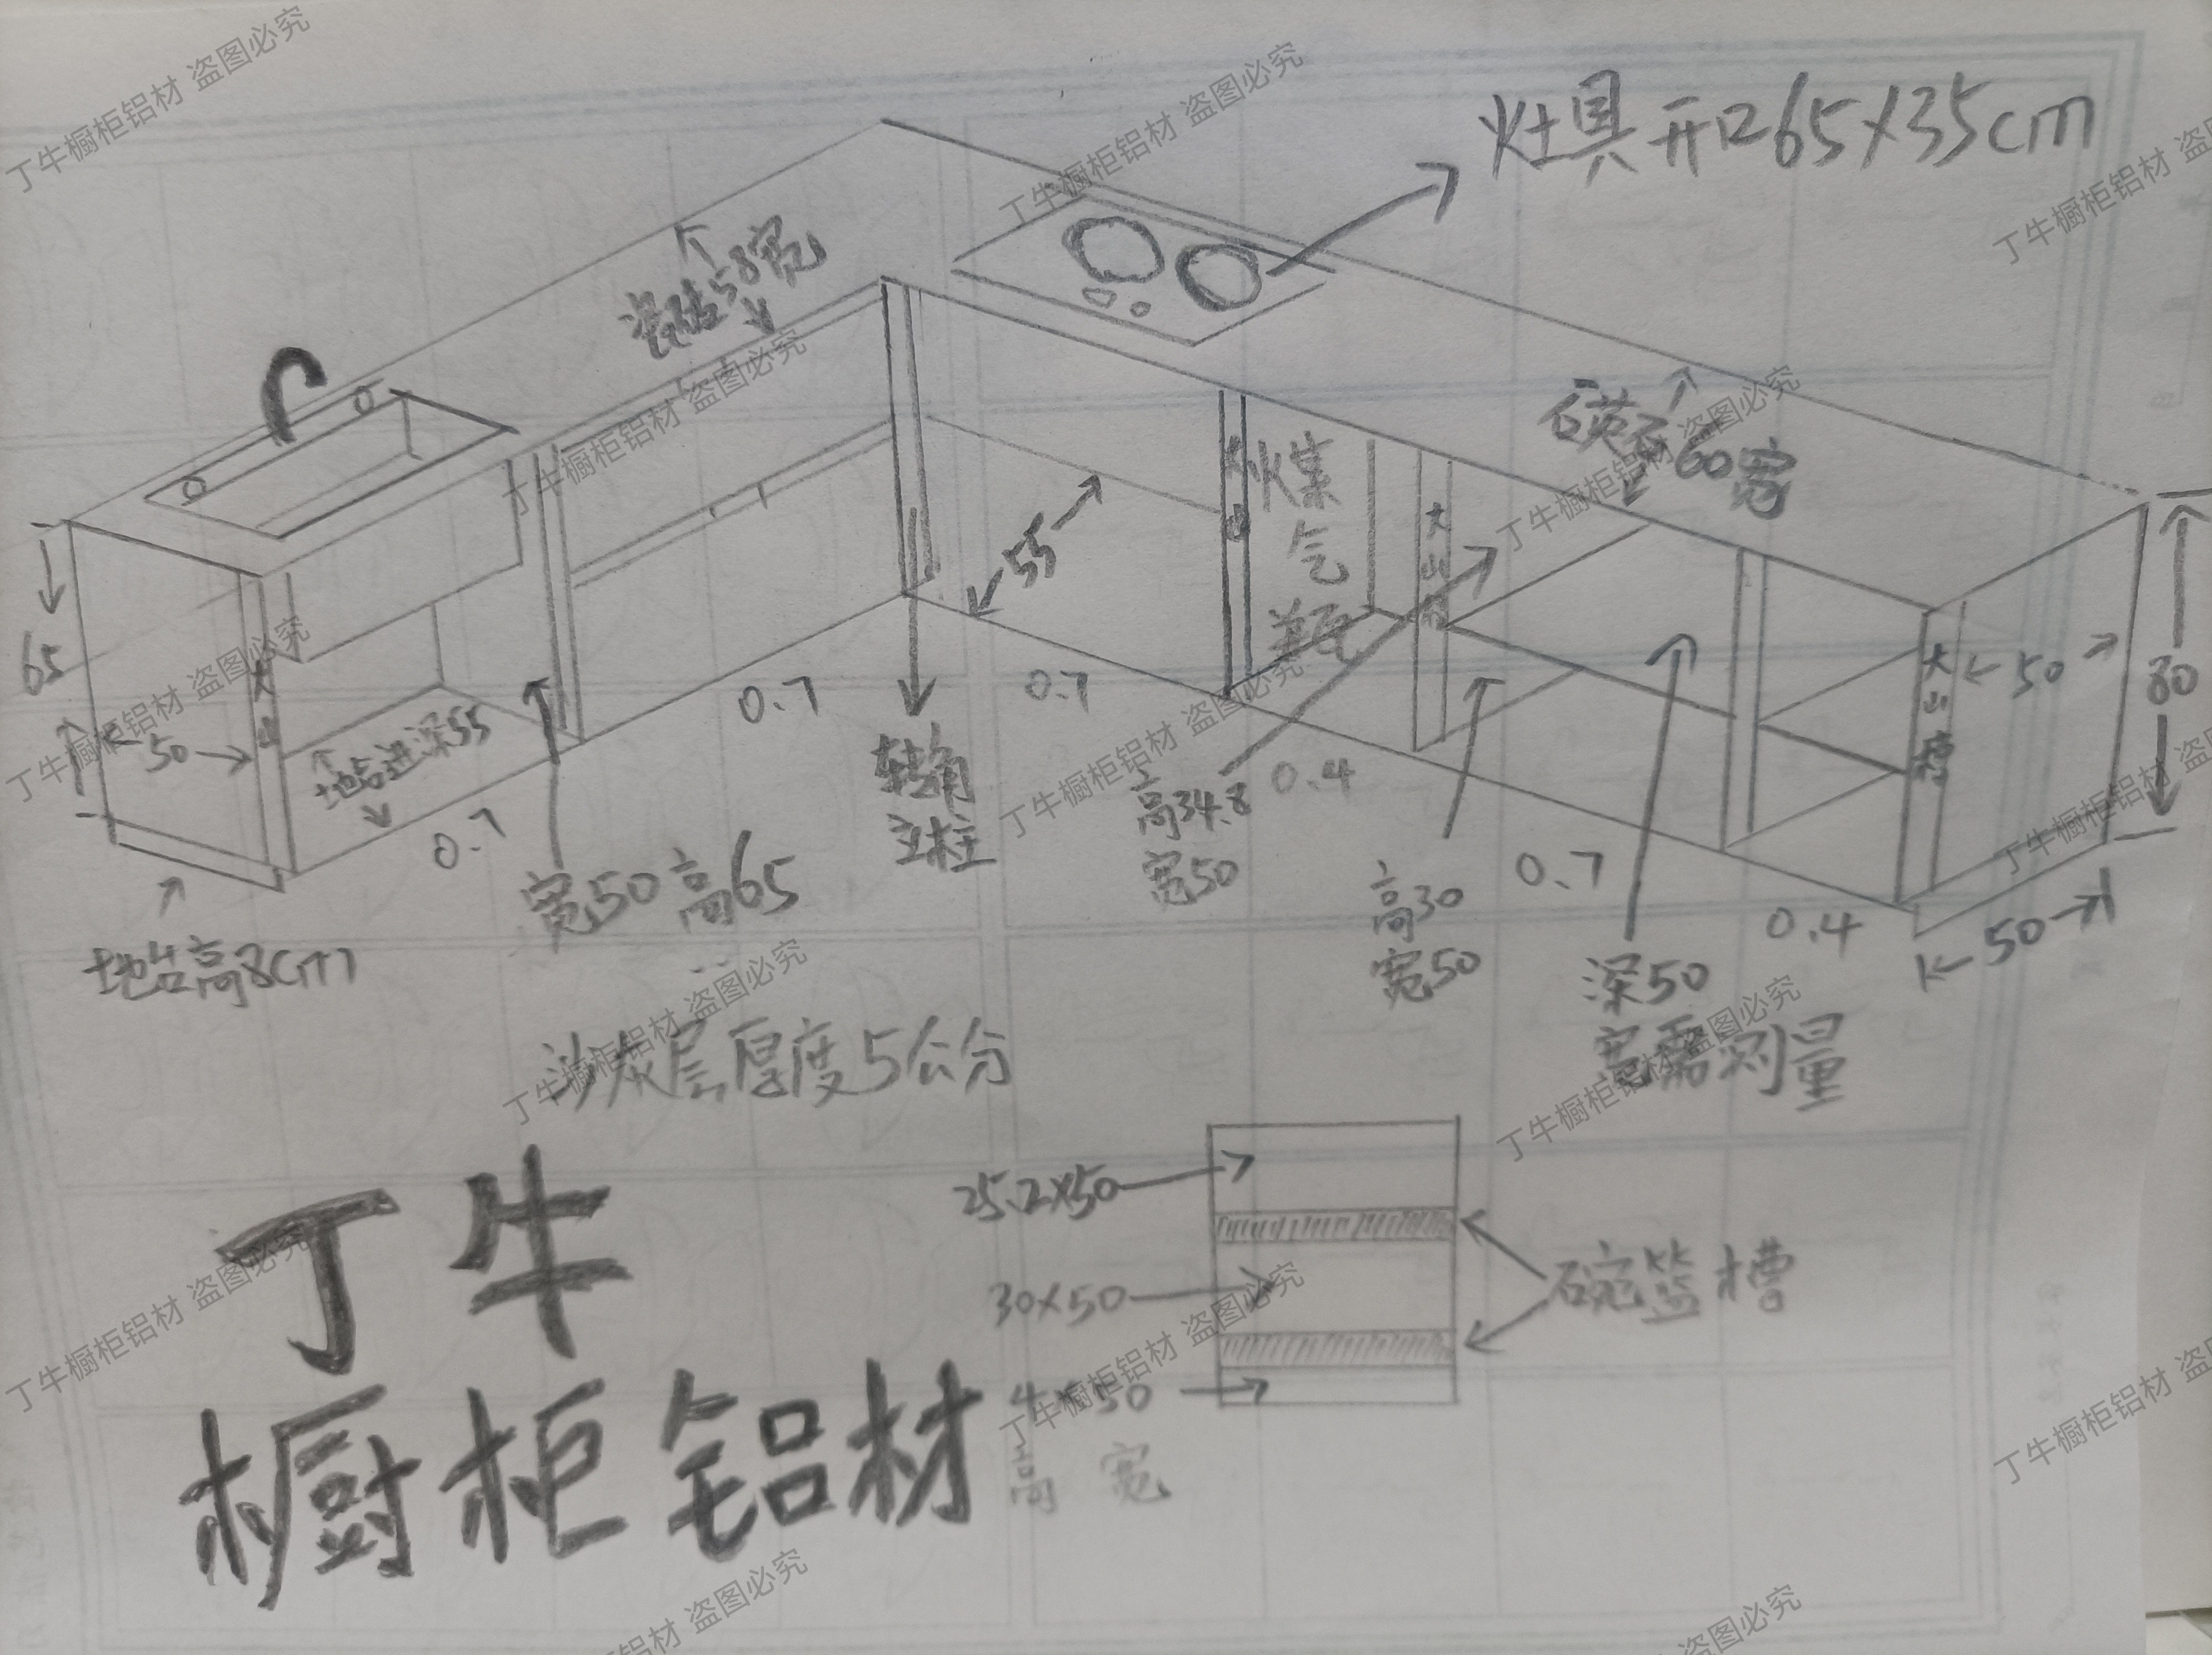 灶具开口65×35cm
瓷砖58宽
石英石60宽
65
50
大山
地台进深55
0.7
宽50高65
地台高8cm
0.7
转角
立柱
55
0.7
大山
煤
气
大山
高34.8
宽50
0.4
高30
宽50
0.7
深50
宽需测量
0.4
大山槽
50
80
50
沙灰层厚度5公分
丁牛
橱柜铝材
25.2×50
30×50
4×50
高 宽
碗篮槽
丁牛橱柜铝材 盗图必究